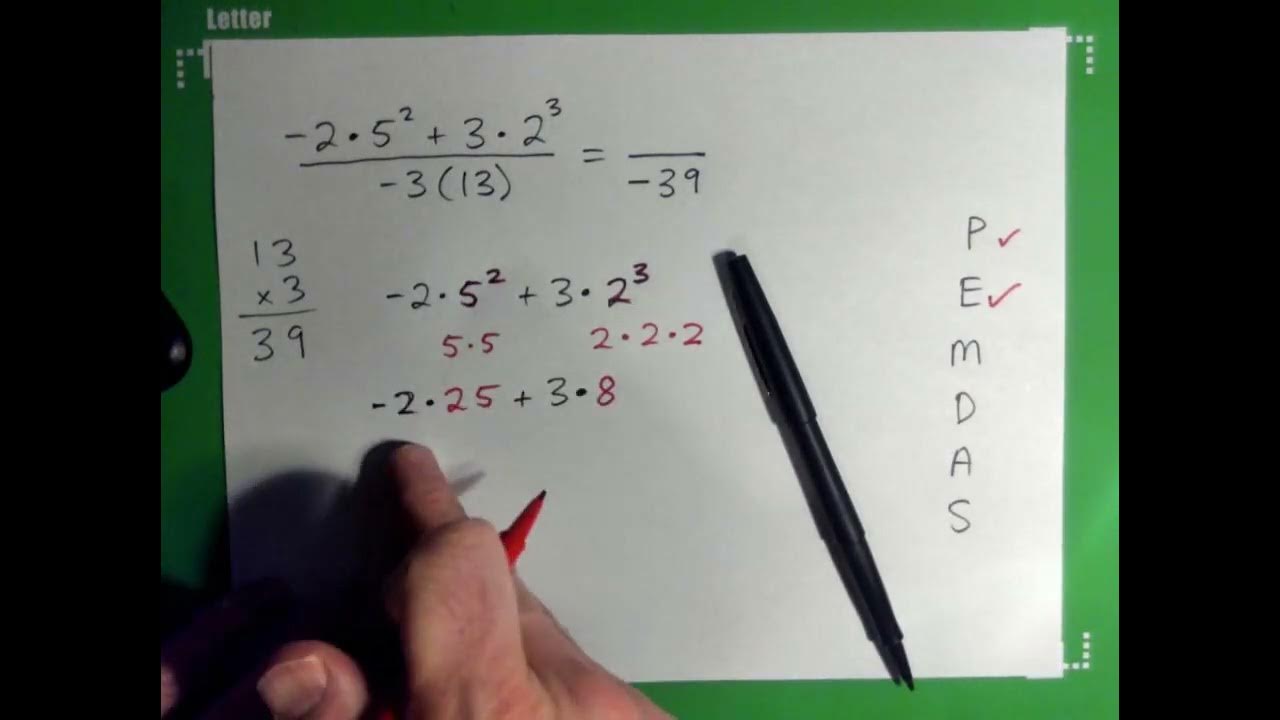 Letter
-2 · 5² + 3 · 2³
-3(13)
=
-39
13
x 3
39
-2 · 5² + 3 · 2³
5·5 2·2·2
-2 · 25 + 3 · 8
P ✓
E ✓
M
D
A
S